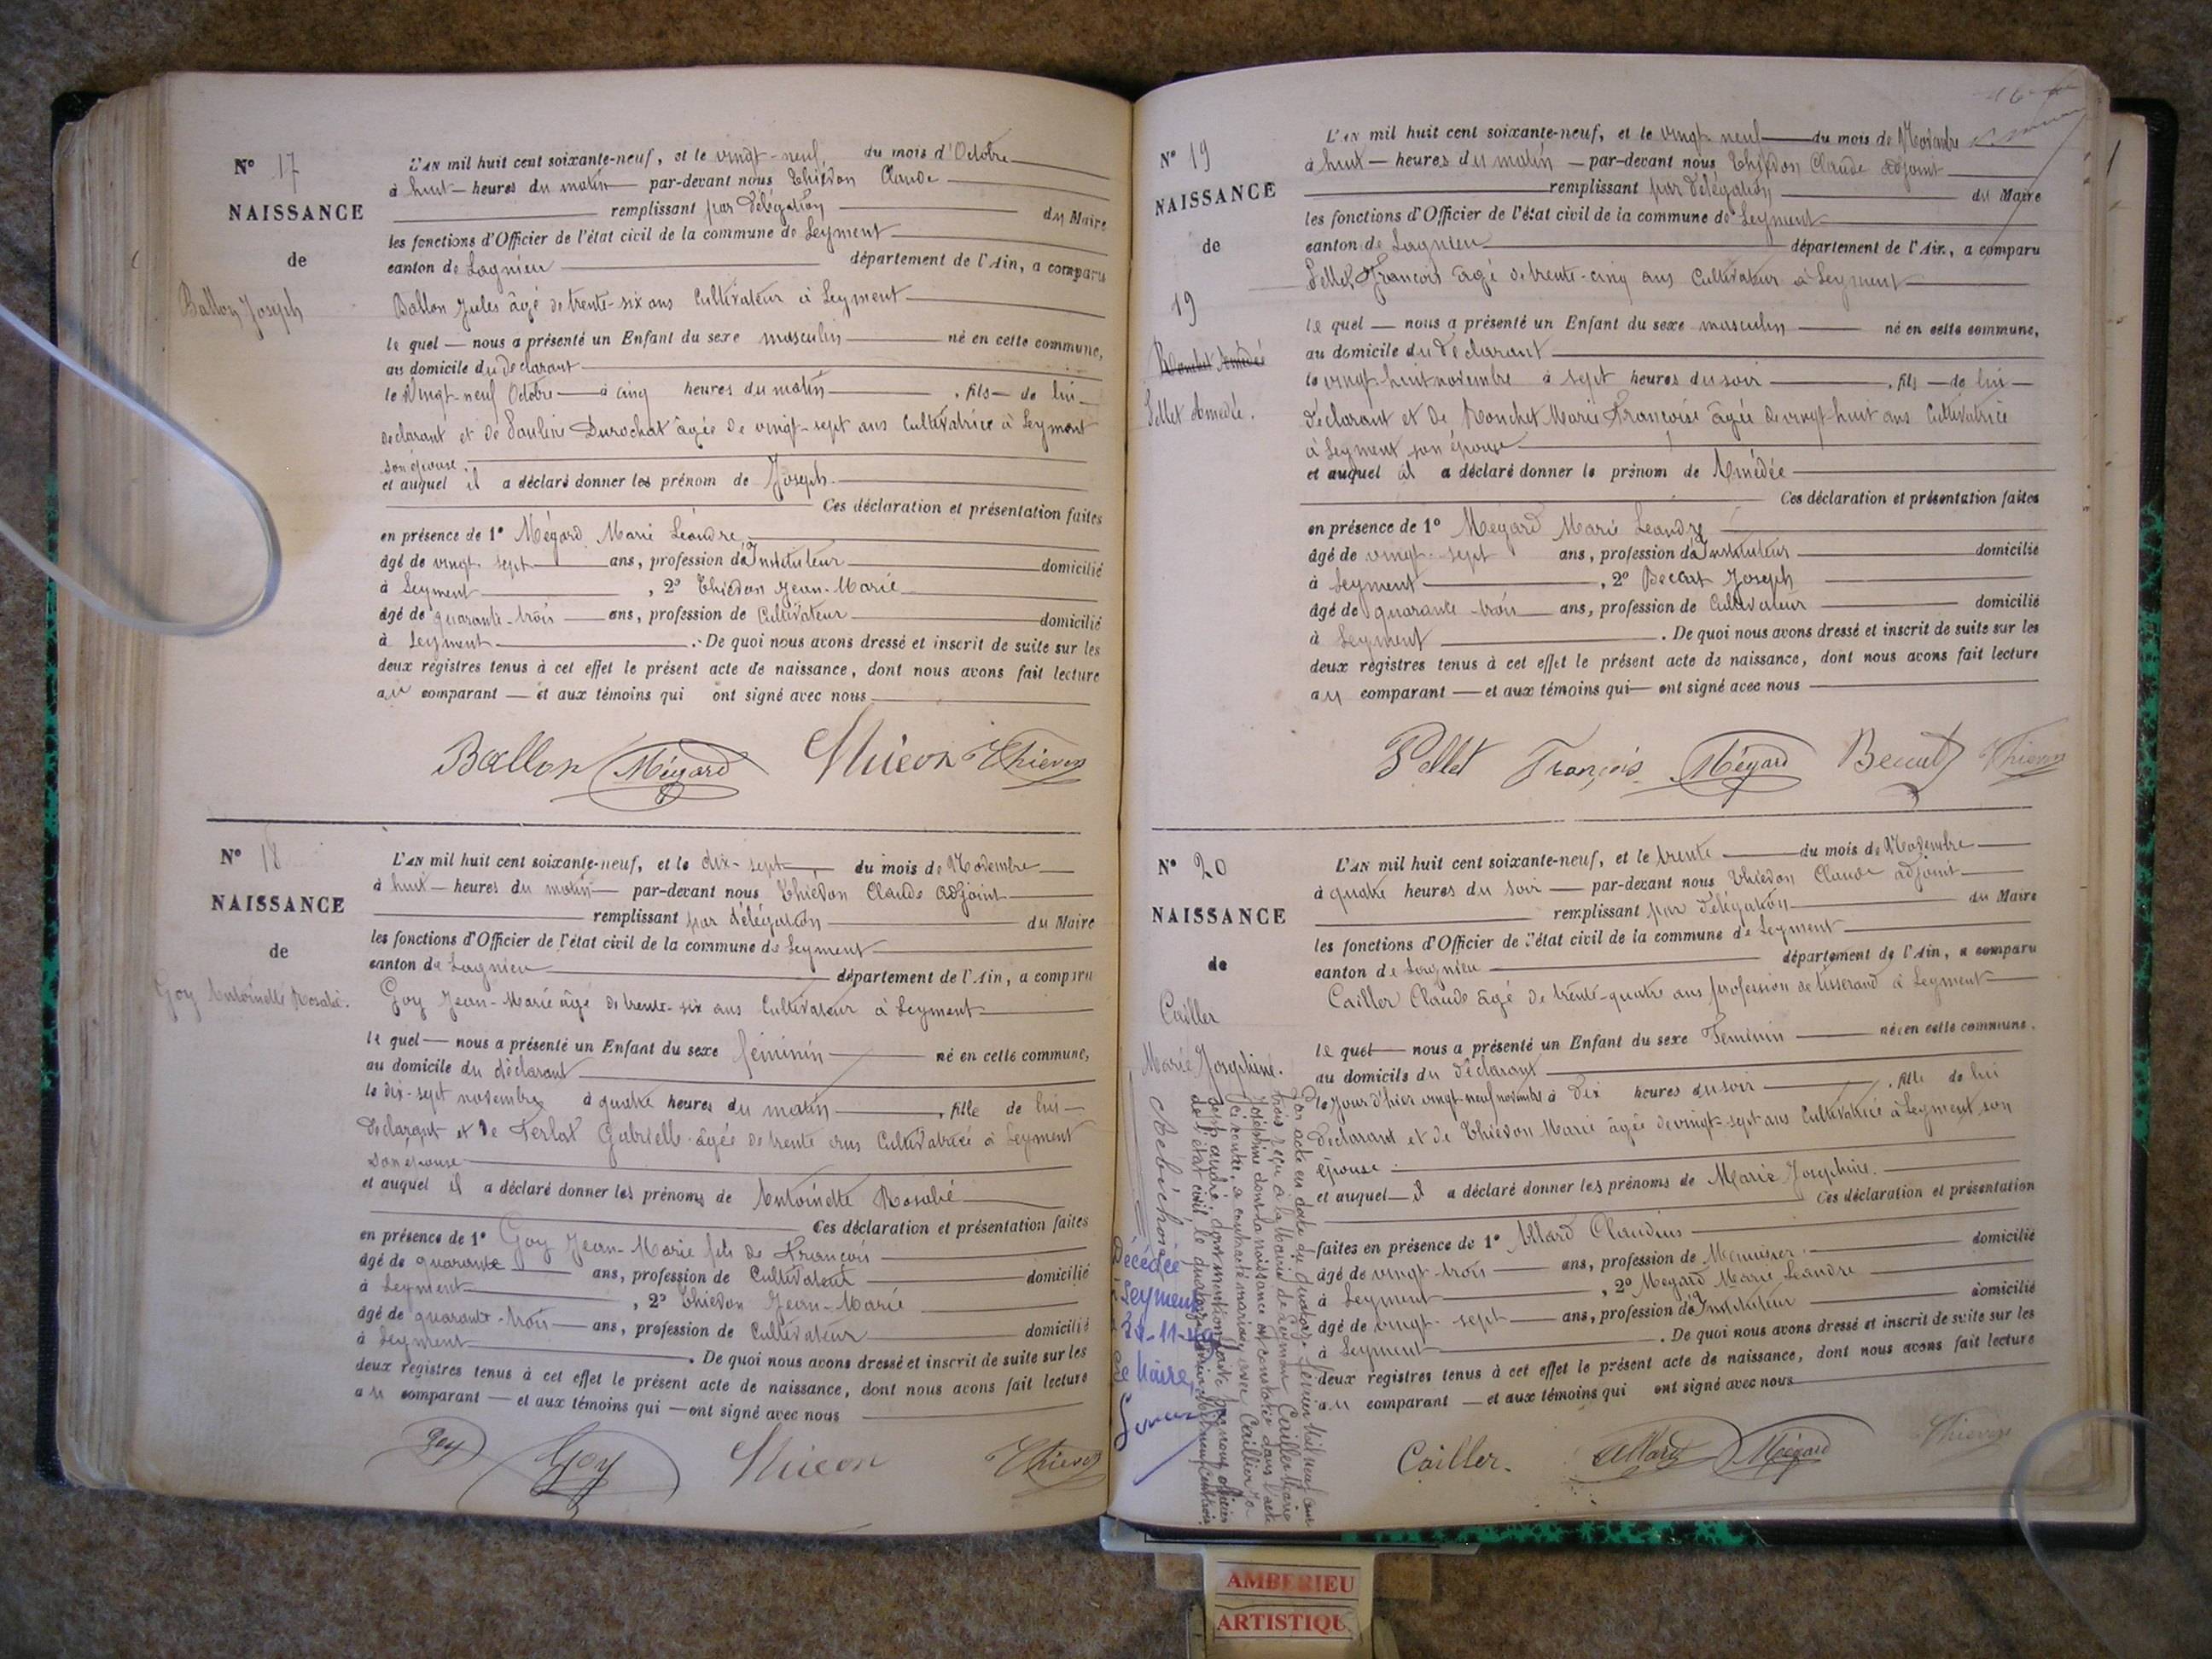 N° 17
NAISSANCE
de
Ballon Joseph
L'AN mil huit cent soixante-neuf, et le vingt-neuf du mois d'Octobre
à huit heures du matin par-devant nous Thiévon Claude
remplissant par délégation du Maire
les fonctions d'Officier de l'état civil de la commune de Leyment
canton de Lagnieu département de l'Ain, a comparu
Ballon Jules âgé de trente-six ans Cultivateur à Leyment
le quel nous a présenté un Enfant du sexe masculin né en cette commune,
au domicile du déclarant
le vingt-neuf Octobre à cinq heures du matin, fils de lui
déclarant et de Pauline Durochat âgée de vingt-sept ans Cultivatrice à Leyment
son épouse.
et auquel il a déclaré donner les prénom de Joseph.
Ces déclaration et présentation faites
en présence de 1° Mégard Marie Léandre
âgé de vingt-sept ans, profession d'Instituteur domicilié
à Leyment, 2° Thiévon Jean-Marie
âgé de quarante-trois ans, profession de Cultivateur domicilié
à Leyment. De quoi nous avons dressé et inscrit de suite sur les
deux registres tenus à cet effet le présent acte de naissance, dont nous avons fait lecture
au comparant et aux témoins qui ont signé avec nous
Ballon Mégard Thiévon Thiévon
N° 18
NAISSANCE
de
Goy Antoinette Rosalie.
L'AN mil huit cent soixante-neuf, et le dix-sept du mois de Novembre
à huit heures du matin par-devant nous Thiévon Claude adjoint
remplissant par délégation du Maire
les fonctions d'Officier de l'état civil de la commune de Leyment
canton de Lagnieu département de l'Ain, a comparu
Goy Jean-Marie âgé de trente-six ans Cultivateur à Leyment
le quel nous a présenté un Enfant du sexe féminin né en cette commune,
au domicile du déclarant
le dix-sept novembre à quatre heures du matin, fille de lui
déclarant et de Terlat Gabrielle âgée de trente ans Cultivatrice à Leyment
son épouse
et auquel il a déclaré donner les prénoms de Antoinette Rosalie
Ces déclaration et présentation faites
en présence de 1° Goy Jean-Marie fils de François
âgé de quarante ans, profession de Cultivateur domicilié
à Leyment, 2° Thiévon Jean-Marie
âgé de quarante-trois ans, profession de Cultivateur domicilié
à Leyment. De quoi nous avons dressé et inscrit de suite sur les
deux registres tenus à cet effet le présent acte de naissance, dont nous avons fait lecture
au comparant et aux témoins qui ont signé avec nous
Goy Goy Thiévon Thiévon
N° 19
NAISSANCE
de
19
Ronchet Amédée
Pellet Amédée.
L'AN mil huit cent soixante-neuf, et le vingt neuf du mois de Novembre
à huit heures du matin par-devant nous Thiévon Claude adjoint
remplissant par délégation du Maire
les fonctions d'Officier de l'état civil de la commune de Leyment
canton de Lagnieu département de l'Ain, a comparu
Pellet François âgé de trente-cinq ans Cultivateur à Leyment
le quel nous a présenté un Enfant du sexe masculin né en cette commune,
au domicile du déclarant
le vingt-huit novembre à sept heures du soir, fils de lui
déclarant et de Ronchet Marie Françoise âgée de vingt-huit ans Cultivatrice
à Leyment son épouse
et auquel il a déclaré donner le prénom de Amédée
Ces déclaration et présentation faites
en présence de 1° Mégard Marie Léandre
âgé de vingt-sept ans, profession d'Instituteur domicilié
à Leyment, 2° Joseph
âgé de quarante-trois ans, profession de Cultivateur domicilié
à Leyment. De quoi nous avons dressé et inscrit de suite sur les
deux registres tenus à cet effet le présent acte de naissance, dont nous avons fait lecture
au comparant et aux témoins qui ont signé avec nous
Pellet François Mégard Thiévon
N° 20
NAISSANCE
de
Cailler
Marie Joséphine.
L'AN mil huit cent soixante-neuf, et le trente du mois de Novembre
à quatre heures du soir par-devant nous Thiévon Claude adjoint
remplissant par délégation du Maire
les fonctions d'Officier de l'état civil de la commune de Leyment
canton de Lagnieu département de l'Ain, a comparu
Cailler Claude âgé de trente-quatre ans profession de tisserand à Leyment
le quel nous a présenté un Enfant du sexe Féminin né en cette commune.
au domicile du déclarant
le jour d'hier vingt-neuf novembre à dix heures du soir, fille de lui
déclarant et de Thiévon Marie âgée de vingt-sept ans Cultivatrice à Leyment son
épouse.
et auquel il a déclaré donner les prénoms de Marie Joséphine.
Ces déclaration et présentation
faites en présence de 1° Allard Claudius
âgé de vingt-trois ans, profession de Menuisier domicilié
à Leyment, 2° Mégard Marie Léandre
âgé de vingt-sept ans, profession d'Instituteur domicilié
à Leyment. De quoi nous avons dressé et inscrit de suite sur les
deux registres tenus à cet effet le présent acte de naissance, dont nous avons fait lecture
au comparant et aux témoins qui ont signé avec nous
Cailler. Allard Mégard Thiévon
Par acte en date du quatorze février mil neuf cent
trois reçu à la mairie de Leyment Cailler Marie
Joséphine dont la naissance est constatée dans l'acte
ci contre, a contracté mariage avec Cailler
dont mention faite par nous officier
de l'état civil, le quatorze février mil neuf cent trois.
Décédée
à Leyment
Le Maire,
AMBERIEU
ARTISTIQU